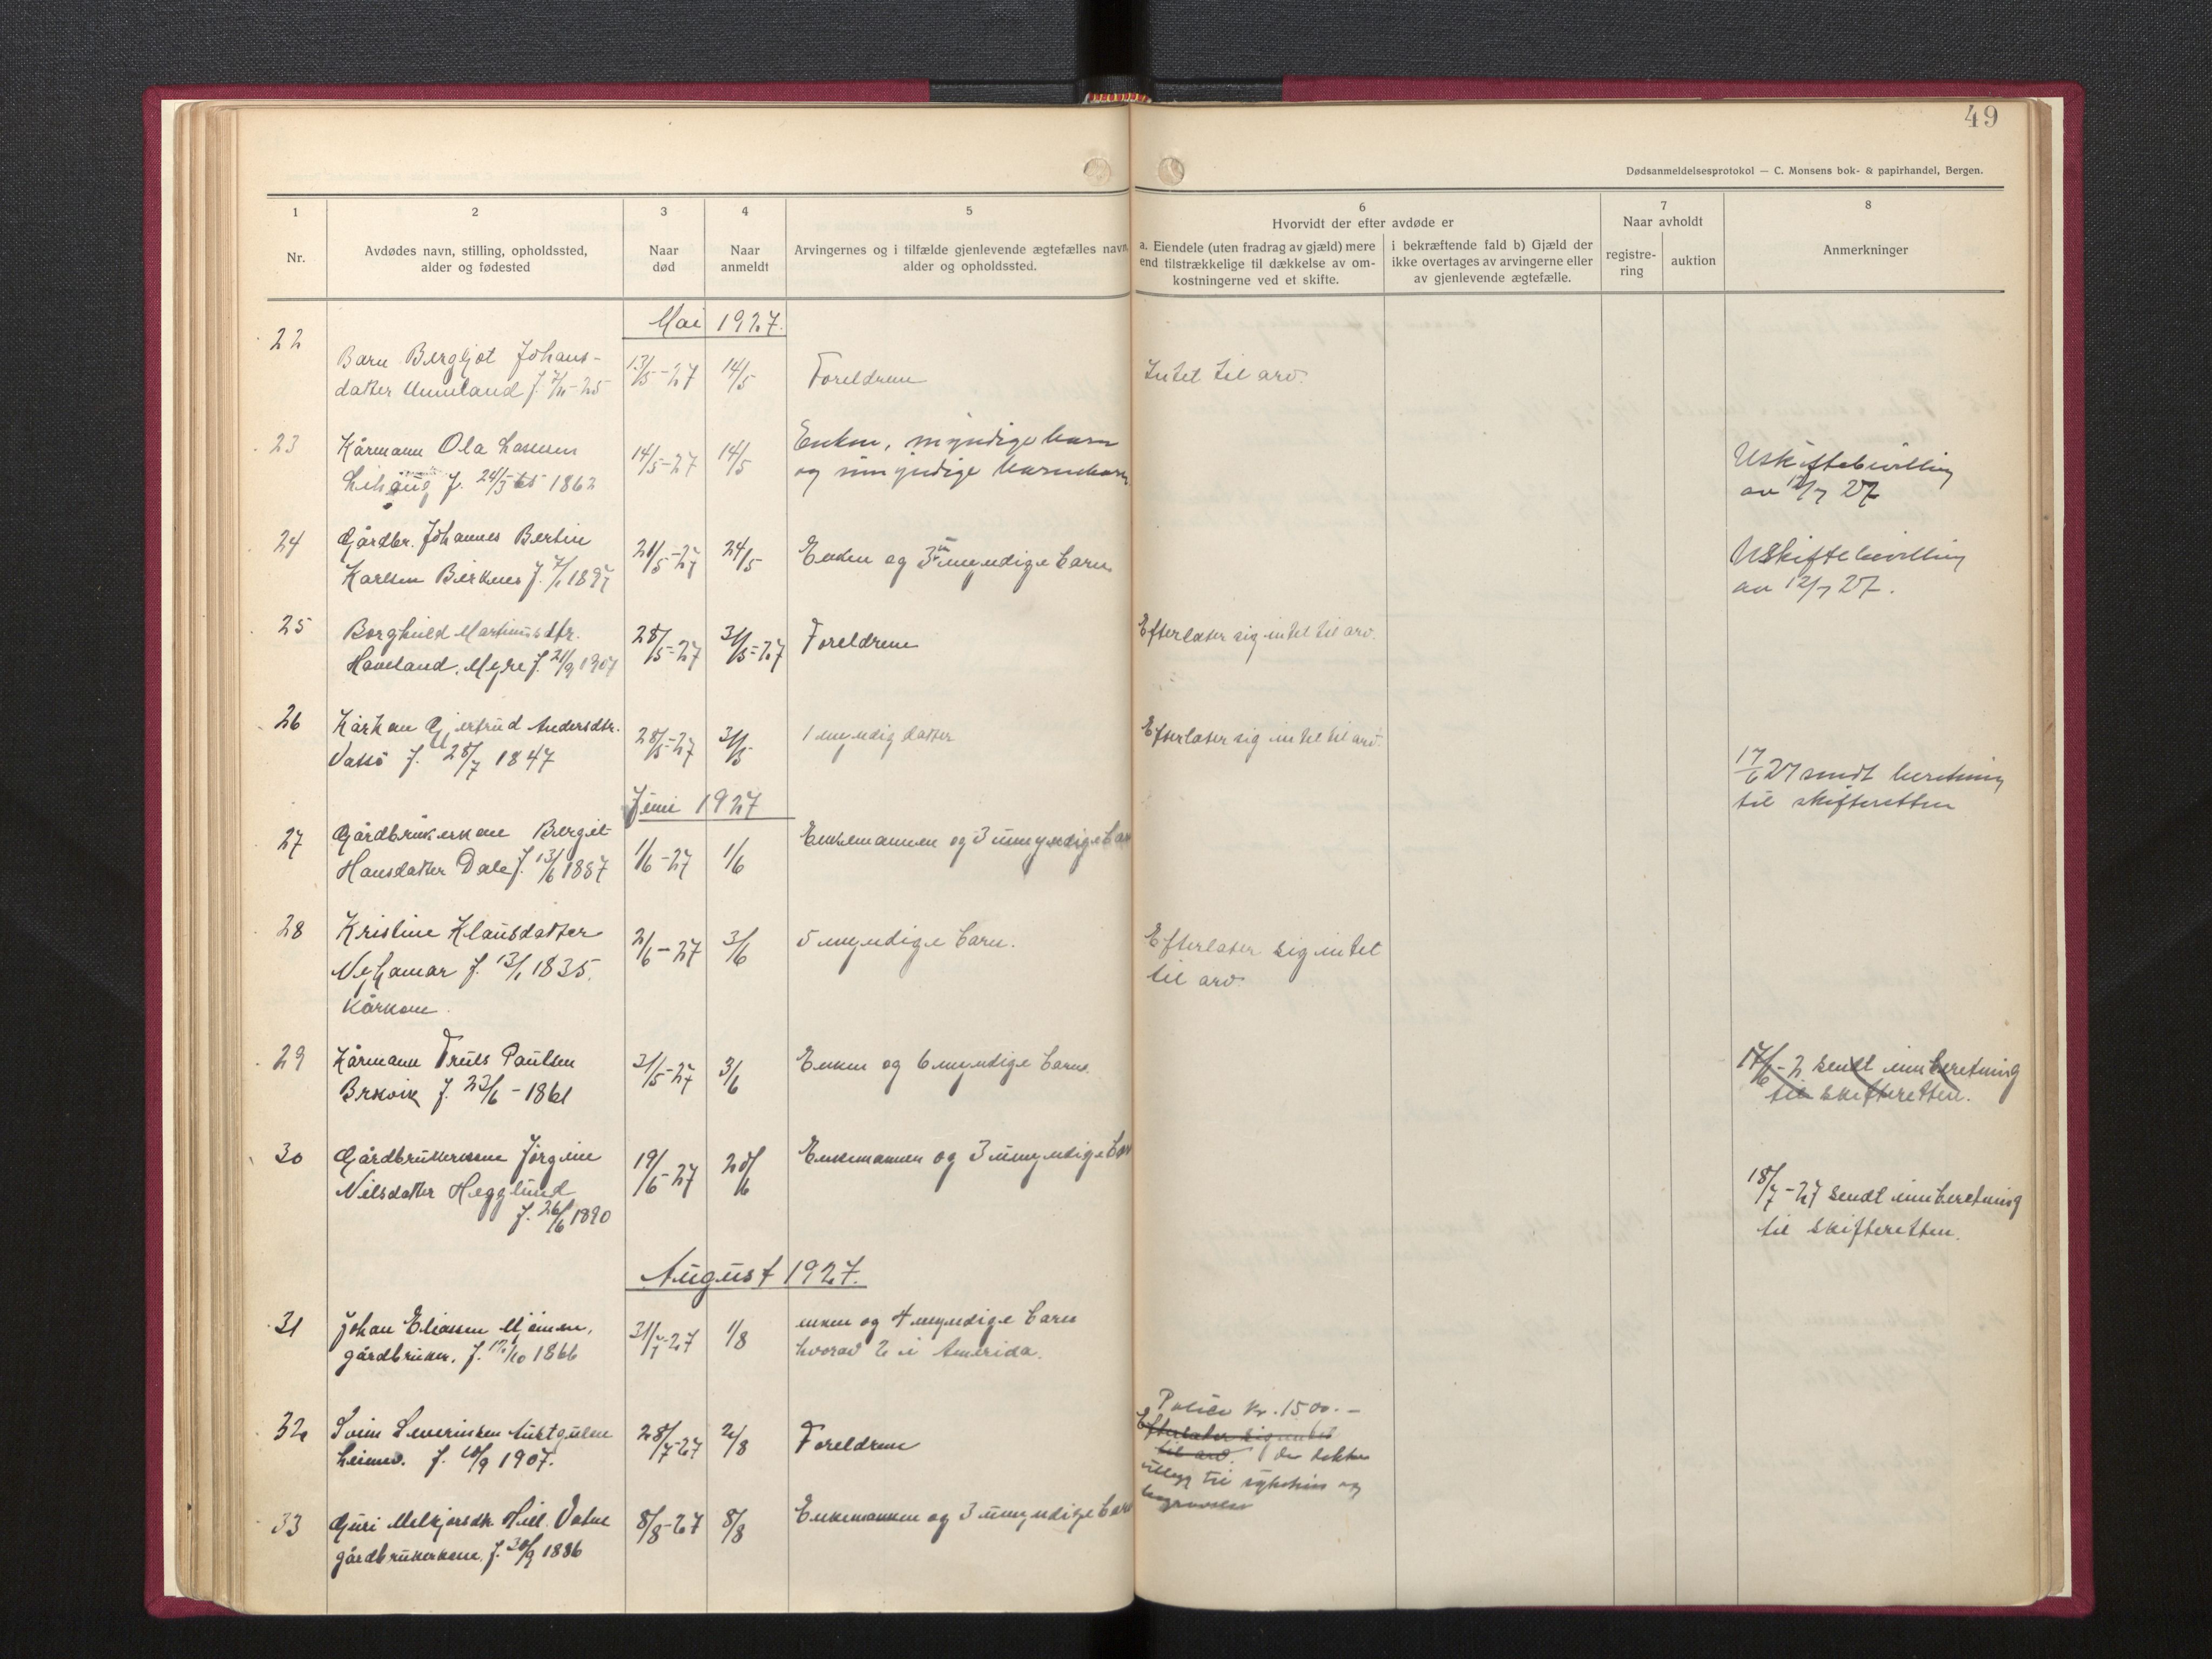 49
Dødsanmeldelsesprotokol — C. Monsens bok- & papirhandel, Bergen.
1 2 3 4 5 6 7 8
Nr.
Avdødes navn, stilling, opholdssted,
alder og fødested
Naar
død
Naar
anmeldt
Arvingernes og i tilfælde gjenlevende ægtefælles navn,
alder og opholdssted.
Hvorvidt der efter avdøde er
a. Eiendele (uten fradrag av gjæld) mere
end tilstrækkelige til dækkelse av om-
kostningerne ved et skifte.
i bekræftende fald b) Gjæld der
ikke overtages av arvingerne eller
av gjenlevende ægtefælle.
Naar avholdt
registre-
ring
auktion
Anmerkninger
Mai 1927.
22
Barn Bergljot Johans-
datter Unneland f. 7/11-25
13/5-27 14/5 Foreldrene Intet til arv.
23 Kårmann Ola Lassesen
f. 24/3 1862
14/5-27 14/5
Enken, myndige barn
og umyndige barnebarn
Uskiftebevilling
av 12/7 27
24 Gårdbr. Johannes Bertin
Karlsen Birknes f. 7/1 1897
21/5-27 24/5 Enken og 3 umyndige barn
Uskiftebevilling
av 12/7 27.
25 Borghild Martinusdtr.
Haveland, Myre f. 21/9 1907
28/5-27 31/5-27 Foreldrene Efterlater sig intet til arv.
26 Kårkone Gjertrud Andersdtr.
Vassø f. 28/7 1847
28/5-27 31/5 1 myndig datter Efterlater sig intet til arv.
Juni 1927
17/6 27 sendt beretning
til skifteretten
27 Gårdbrukerkone Bergit
Hansdatter Dale f. 13/6 1887
1/6-27 1/6 Enkemannen og 3 umyndige barn
28 Kristine Klausdatter
Nyhamar f. 13/1 1835.
Kårkone.
2/6-27 3/6 5 myndige barn.
Efterlater sig intet
til arv
29 Kårmann Truls Paulsen
Brkvik f. 23/6-1861
31/5-27 3/6 Enken og 6 myndige barn.
17/6-2 sendt innberetning
til skifteretten.
30 Gårdbrukerkone Jørgine
Nilsdatter Hegglund
f. 26/6 1890
19/6-27 20/6 Enkemannen og 3 umyndige barn
18/7-27 sendt innberetning
til skifteretten.
August 1927.
31 Johan Eliassen Mjømen,
gårdbruker. f. 17/10 1866
31/7-27 1/8
enken og 4 myndige barn
hvorav 2 i Amerika.
32 Svein Severinsen Austgulen
Leirvo. f. 18/9 1907.
28/7-27 2/8 Foreldrene
Polise kr. 1500.-
Efterlater sig intet
til arv. der dekker
utlegg til sykehus og
begravelse
33 Guri Melkjorsdtr. Hill Vatne
gårdbrukerkone, f. 30/9 1886
8/8-27 8/8 Enkemannen og 3 umyndige barn